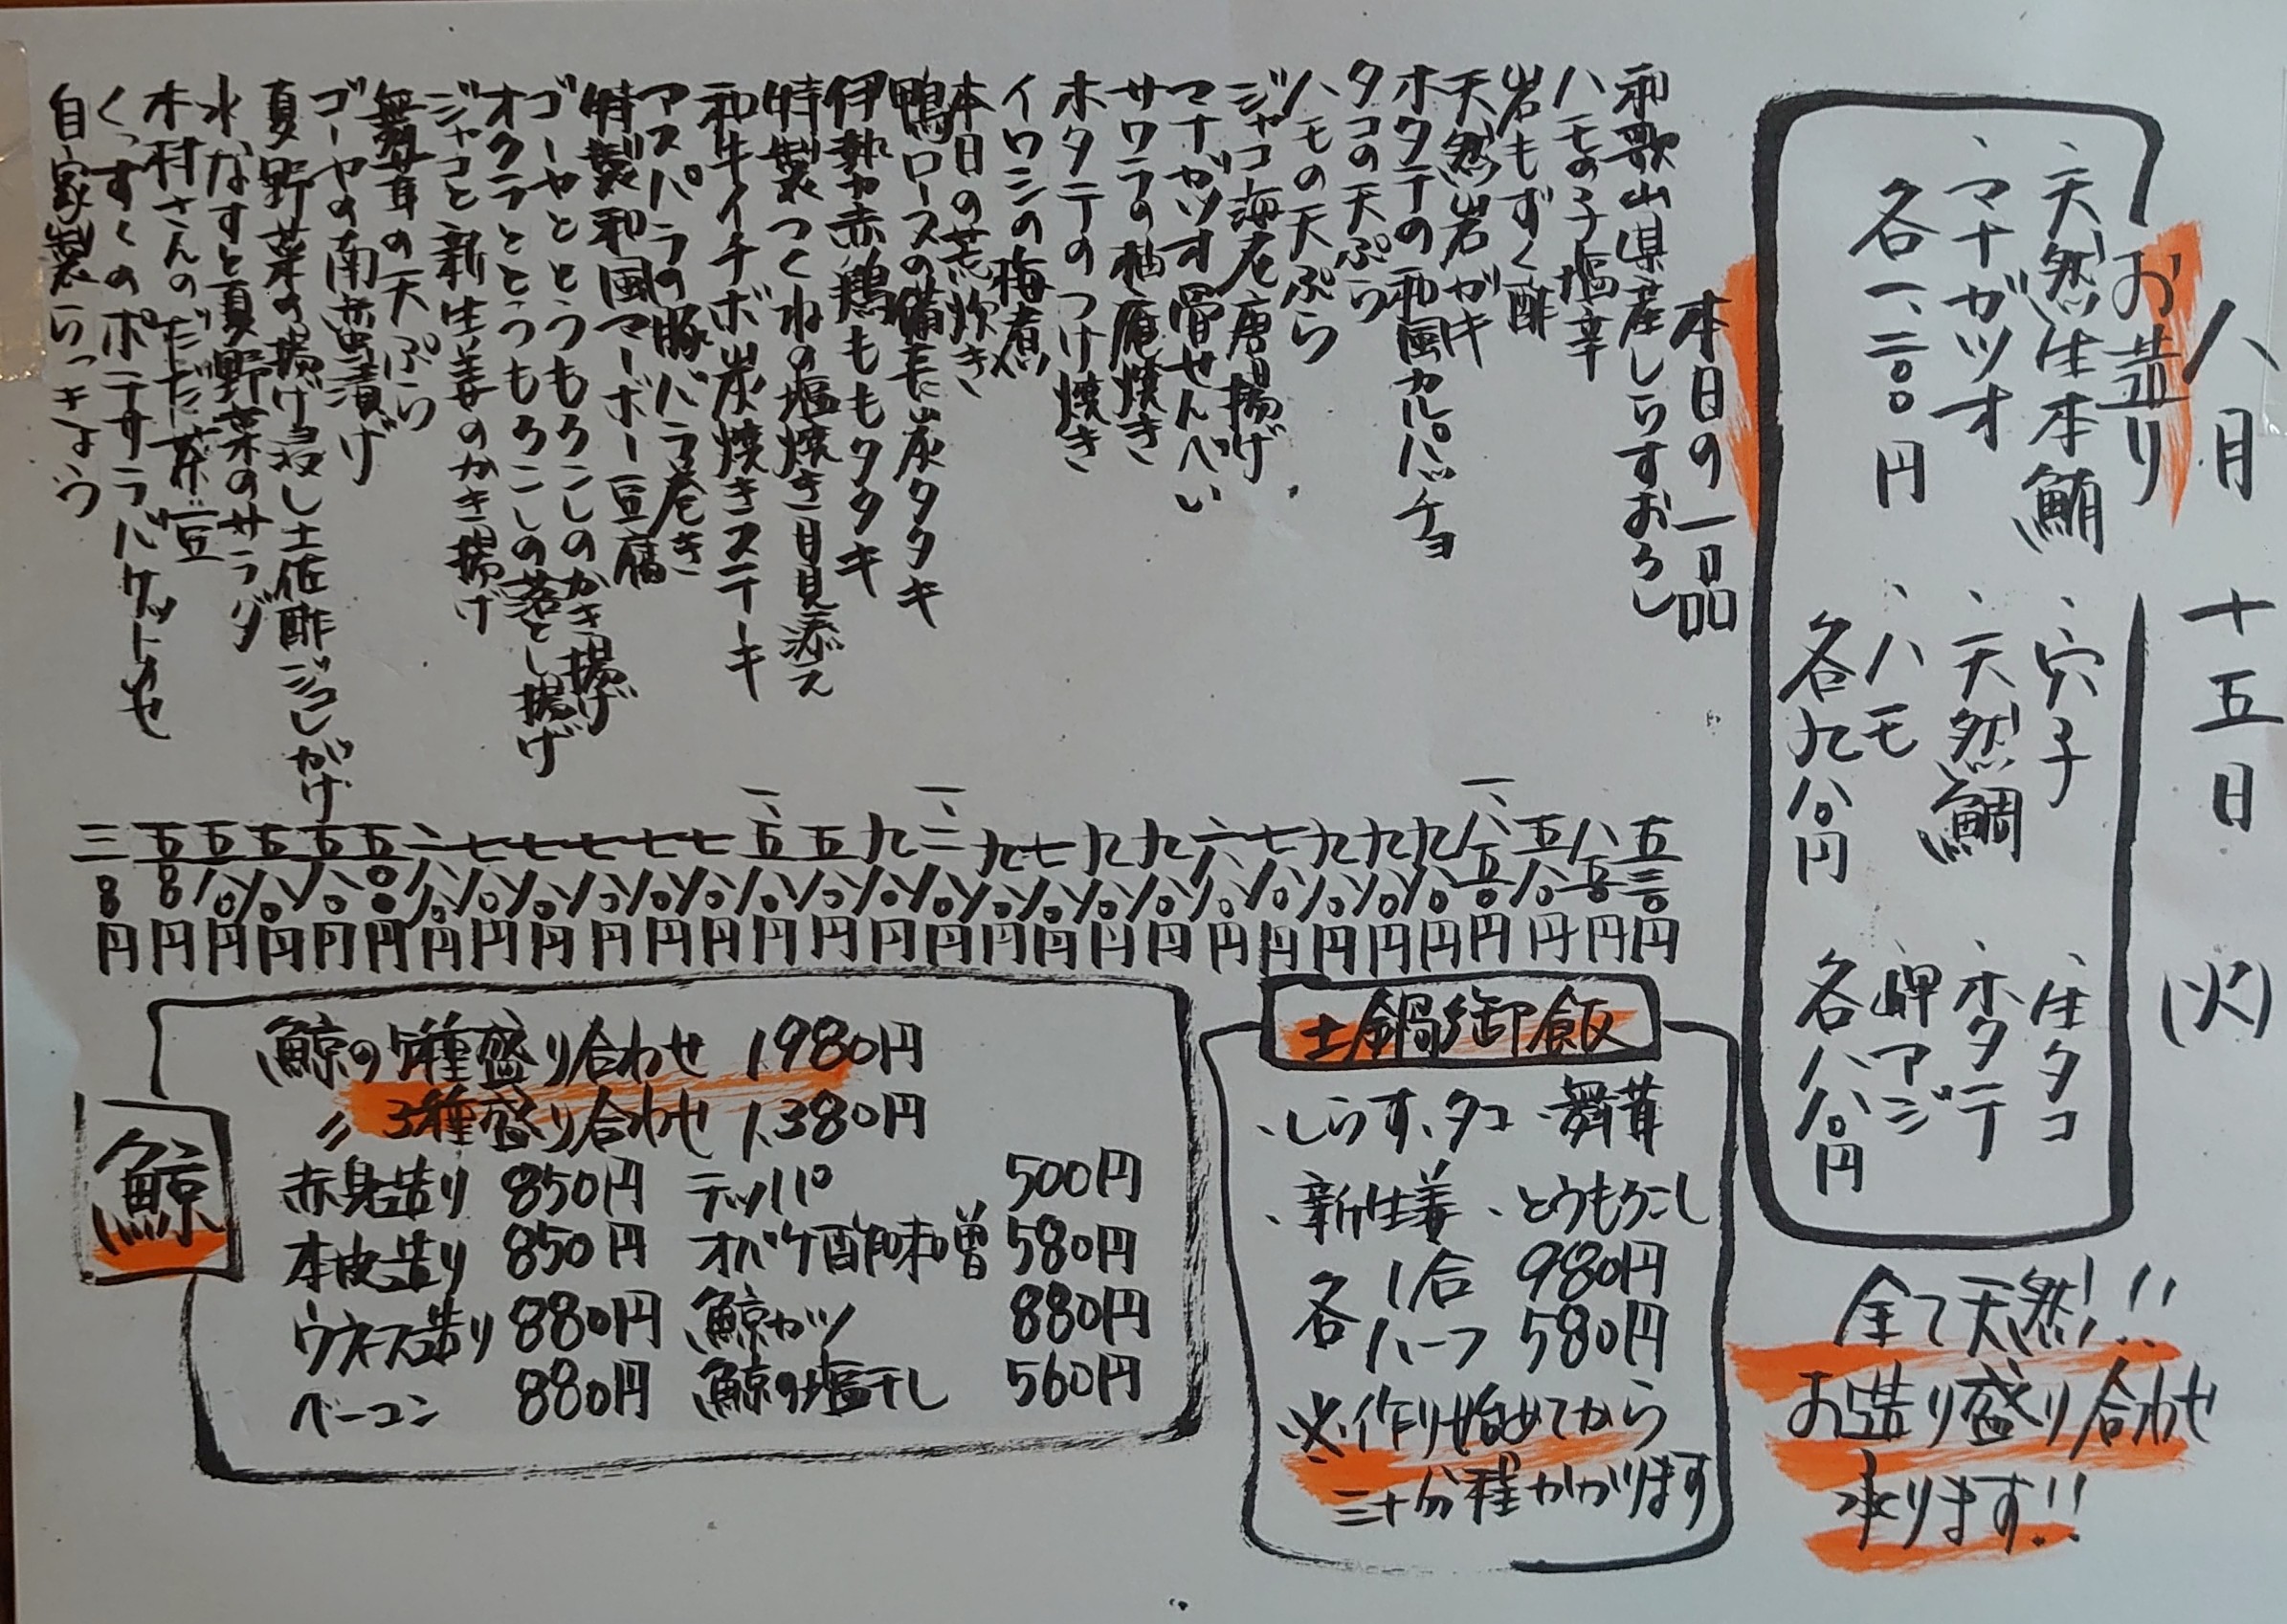 八月十五日(火)
お造り
、天然生本鮪
、マナガツオ
各一、二〇〇円
、穴子
、天然鯛
、ハモ
各九八〇円
、生タコ
、ホタテ
、岬アジ
各八八〇円
全て天然!!
お造り盛り合わせ
承ります!!
本日の一品
和歌山県産しらすおろし 五三〇円
ハモの子塩辛 八五〇円
岩もずく酢 五八〇円
天然岩ガキ 一、八五〇円
ホタテの和風カルパッチョ 九八〇円
タコの天ぷら 九八〇円
ハモの天ぷら 九八〇円
ジャコ海老唐揚げ 七八〇円
マナガツオ骨せんべい 六八〇円
サワラの柚庵焼き 九八〇円
ホタテのつけ焼き 九八〇円
イワシの梅煮 七八〇円
本日の荒炊き 九八〇円
鴨ロースの備長炭タタキ 一、二八〇円
伊勢赤鶏ももタタキ 九八〇円
特製つくねの塩焼き月見添え 五八〇円
和牛イチボ炭焼きステーキ 一、五八〇円
アスパラの豚バラ巻き 七八〇円
特製和風マーボー豆腐 七八〇円
ゴーヤととうもろこしのかき揚げ 七八〇円
オクラととうもろこしの落とし揚げ 七八〇円
ジャコと新生姜のかき揚げ 七八〇円
舞茸の天ぷら 六八〇円
ゴーヤの南蛮漬け 五〇〇円
夏野菜の揚げ浸し土佐酢ジュレがけ 五八〇円
水なすと夏野菜のサラダ 五八〇円
木村さんのだだ茶豆 五八〇円
ポテサラバケット 五〇〇円
自家製らっきょう 三〇〇円
土鍋御飯
、しらす、タコ、舞茸
、新生姜、とうもろこし
各 1合 980円
ハーフ 580円
※作り始めてから
三十分程かかります
鯨
鯨の5種盛り合わせ 1,980円
〃 3種盛り合わせ 1,380円
赤身造り 850円 テッパ 500円
本皮造り 850円 オバケ酢味噌 580円
ウネス造り 880円 鯨カツ 880円
ベーコン 880円 鯨の塩干し 560円